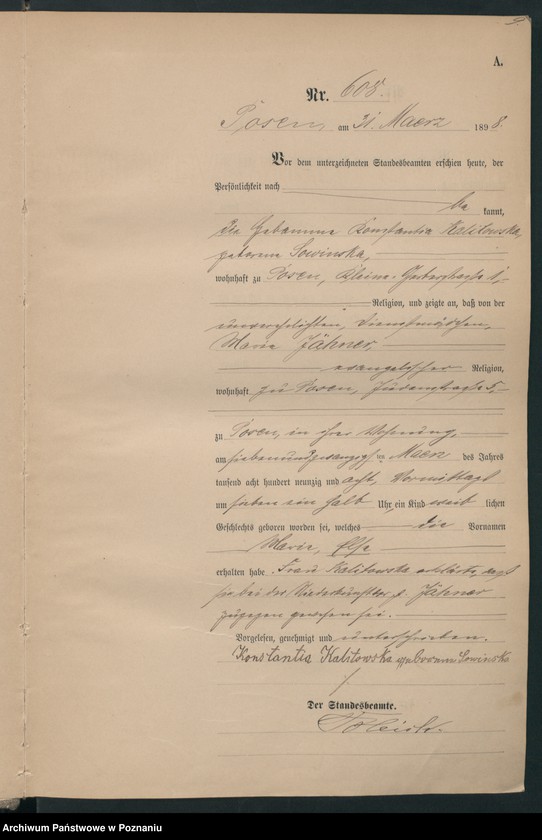 A.
Nr. 608.
Posen, am 31. Maerz 1898.
Vor dem unterzeichneten Standesbeamten erschien heute, der
Persönlichkeit nach
be kannt,
die Hebamme Konstantia Kalitowska,
geborene Sowinska,
wohnhaft zu Posen, Kleine Gerberstraße 1,
Religion, und zeigte an, daß von der
unverehelichten, Dienstmädchen,
Marie Jähner,
evangelischer Religion,
wohnhaft zu Posen, Judenstraße 5,
zu Posen, in ihrer Wohnung,
am siebenundzwanzigsten Maerz des Jahres
tausend acht hundert neunzig und acht, Vormittags
um sieben ein halb Uhr, ein Kind weib lichen
Geschlechts geboren worden sei, welches die Vornamen
Marie, Else
erhalten habe. Frau Kalitowska erklärte, daß
sie bei der Niederkunft der p. Jähner
zugegen gewesen sei.
Vorgelesen, genehmigt und unterschrieben.
Konstantia Kalitowska geborene Sowinska
Der Standesbeamte.
Archiwum Państwowe w Poznaniu